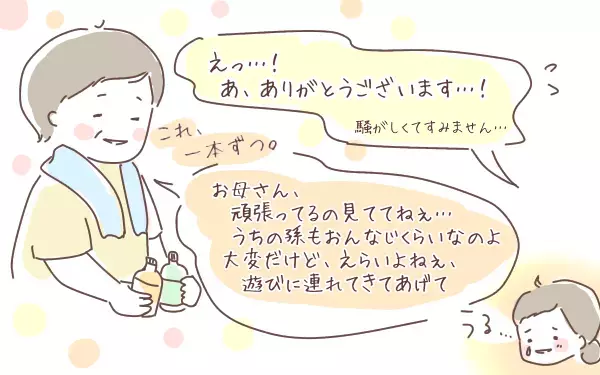 えっ…!
あ、ありがとうございます…!
騒がしくてすみません…
これ、
一本ずつ。
お母さん、
頑張ってるの見ててねぇ…
うちの孫もおんなじくらいなのよ
大変だけど、えらいよねぇ、
遊びに連れてきてあげて
うる…